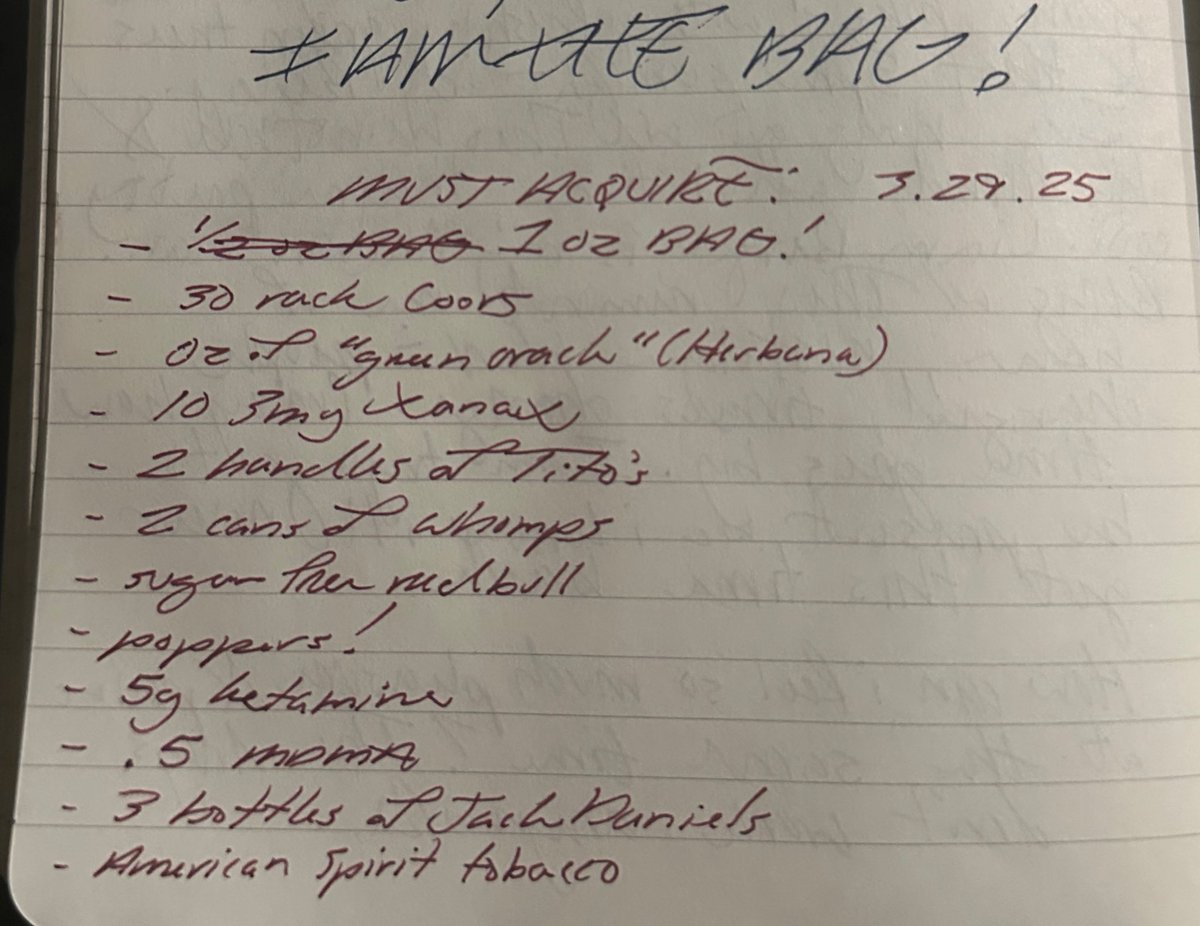 I AM THE BAG!
MUST ACQUIRE: 3.29.25
- 1/2 oz BAG 1 oz BAG!
- 30 rack Coors
- oz of "green crack" (Herbana)
- 10 3mg Xanax
- 2 handles of Tito's
- 2 cans of whomps
- sugar free redbull
- poppers!
- 5g ketamine
- .5 MDMA
- 3 bottles of Jack Daniels
- American Spirit tobacco